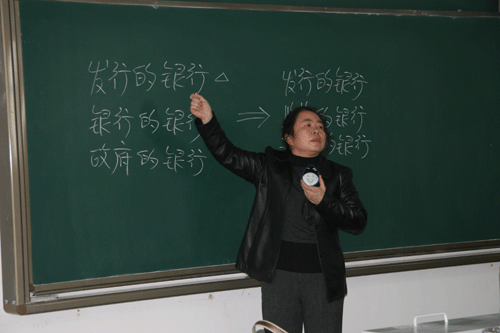 发行的银行 △
银行的银行 ⇒
政府的银行
发行的银行
的银行
的银行